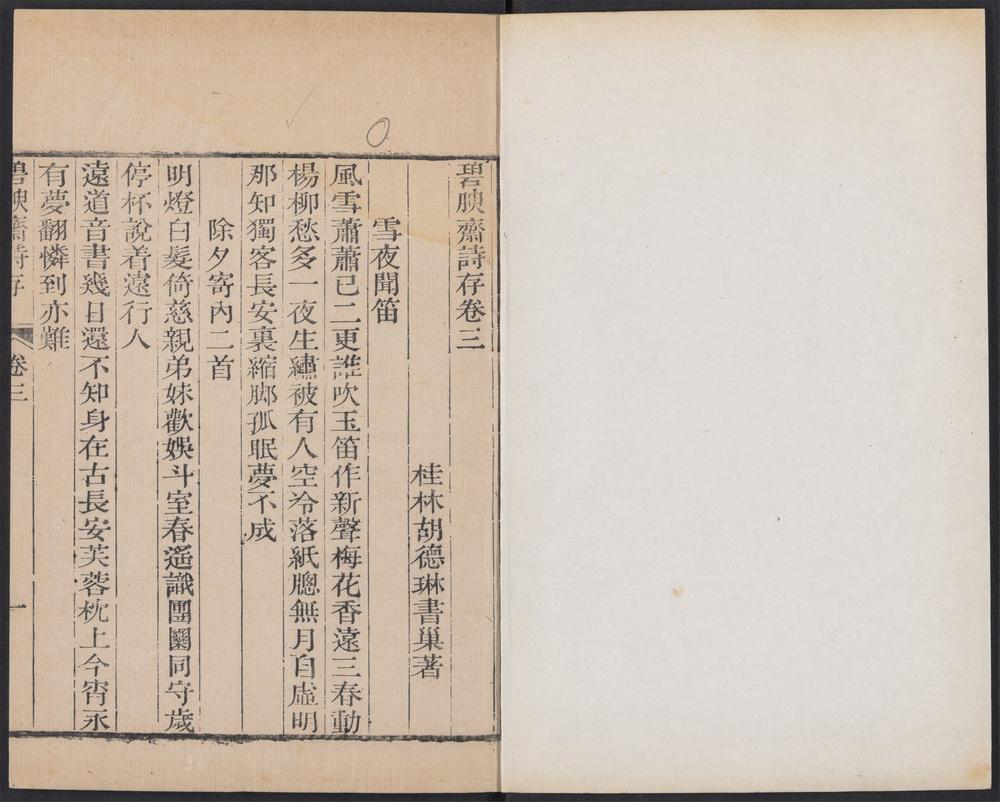 碧腴齋詩存卷三
桂林胡德琳書巢著
雪夜聞笛
風雪蕭蕭已二更誰吹玉笛作新聲梅花香遠三春動
楊柳愁多一夜生繡被有人空冷落紙牕無月自虛明
那知獨客長安裏縮腳孤眠夢不成
除夕寄內二首
明燈白髮倚慈親弟妹歡娛斗室春遙識團圞同守歲
停杯說着遠行人
遠道音書幾日還不知身在古長安芙蓉枕上今宵永
有夢翻憐到亦難
碧腴齋詩存 卷三 一